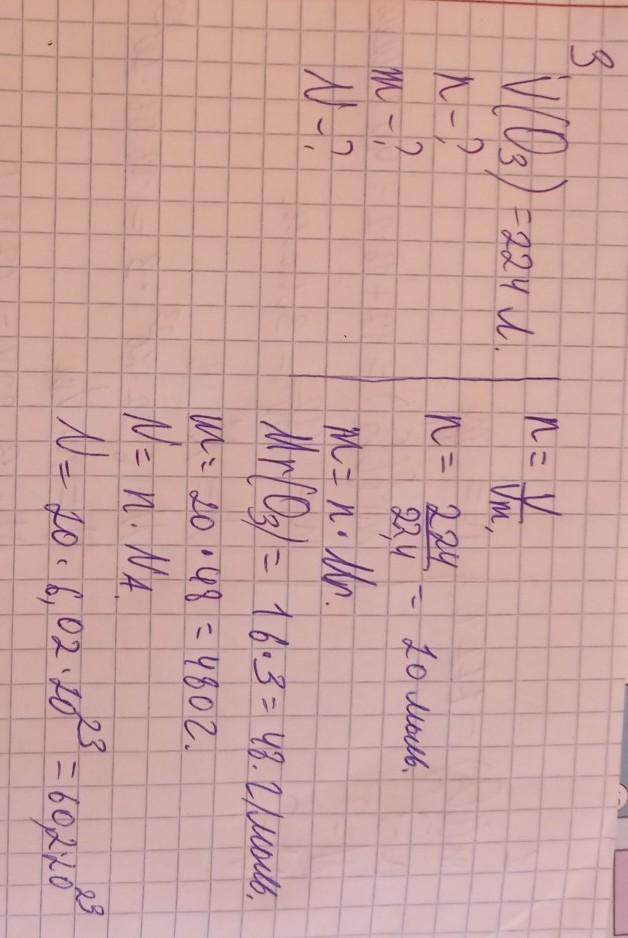 3
V(O₃) = 224 л.
n - ?
m - ?
N - ?
n = V/Vm,
n = 224/22,4 = 10 моль.
m = n · Mr.
Mr(O₃) = 16·3 = 48. г/моль.
m = 10 · 48 = 480г.
N = n · N_A.
N = 10 · 6,02 · 10²³ = 60,2 10²³